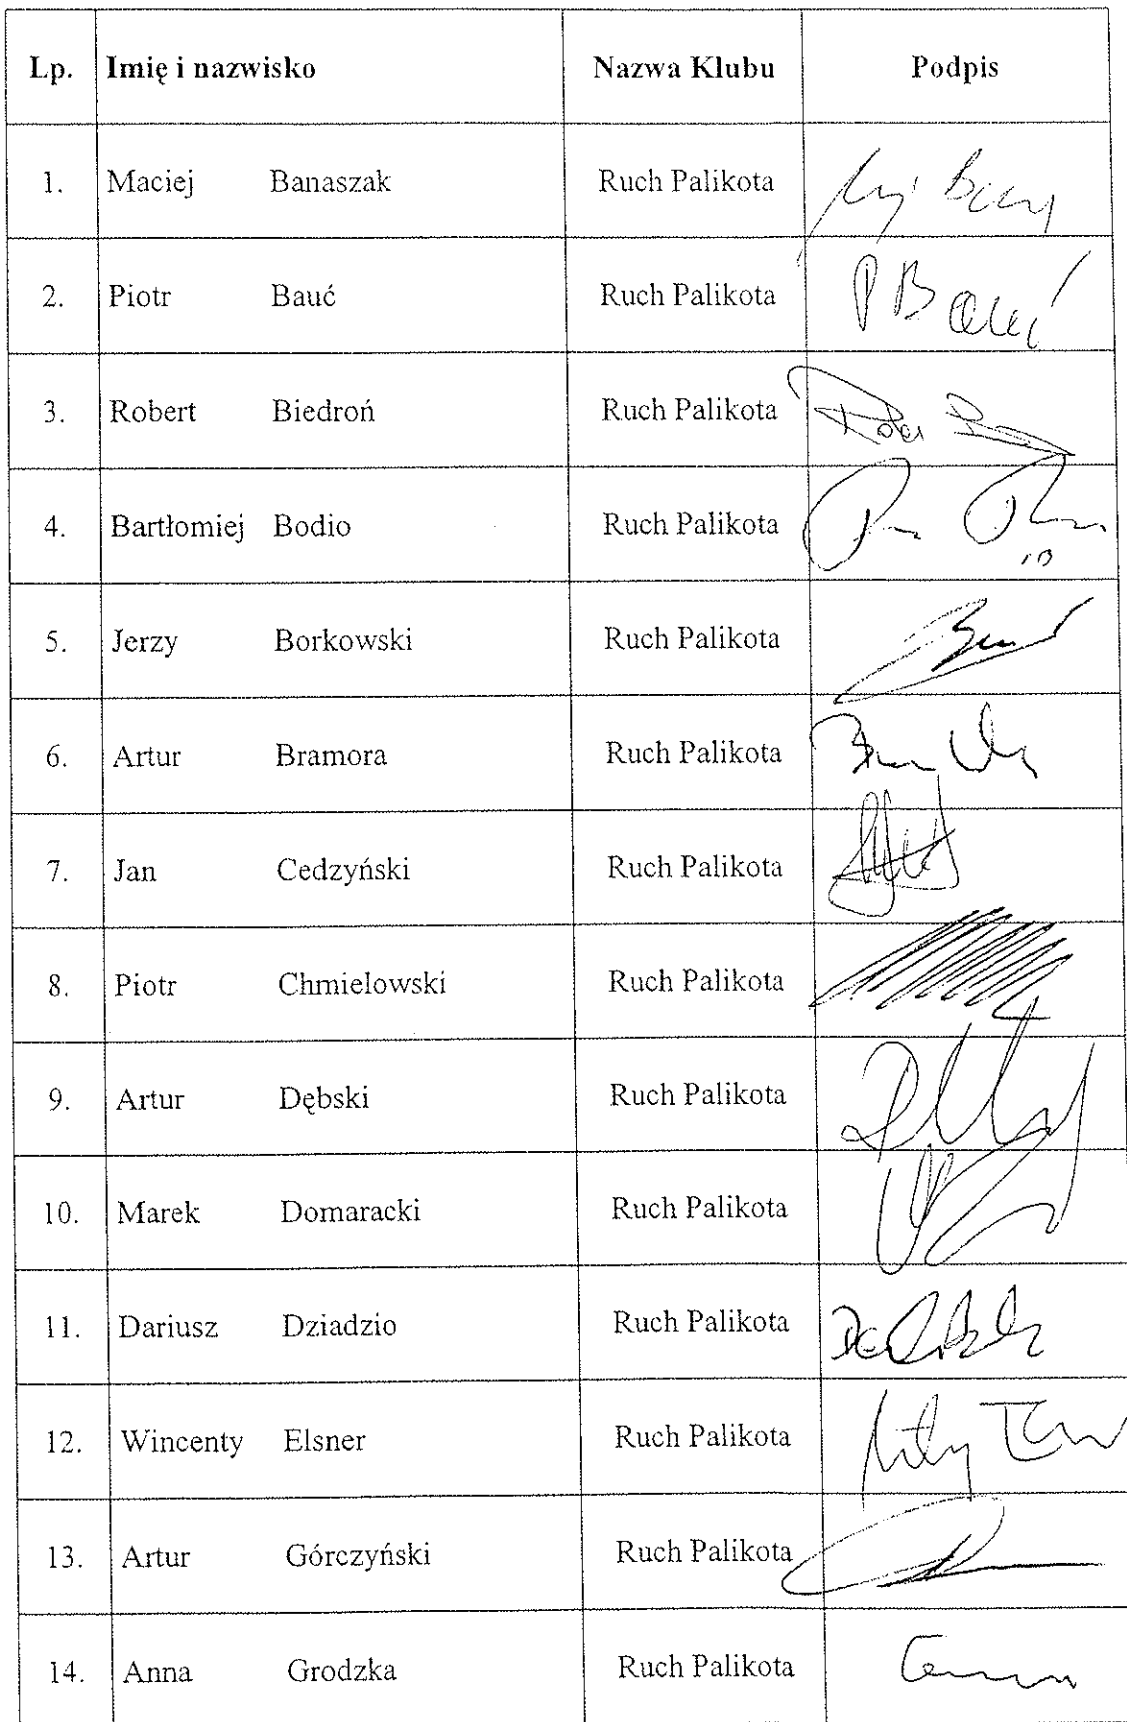 Lp. Imię i nazwisko Nazwa Klubu Podpis
1. Maciej Banaszak Ruch Palikota
2. Piotr Bauć Ruch Palikota P Bauć
3. Robert Biedroń Ruch Palikota
4. Bartłomiej Bodio Ruch Palikota
5. Jerzy Borkowski Ruch Palikota
6. Artur Bramora Ruch Palikota
7. Jan Cedzyński Ruch Palikota
8. Piotr Chmielowski Ruch Palikota
9. Artur Dębski Ruch Palikota
10. Marek Domaracki Ruch Palikota
11. Dariusz Dziadzio Ruch Palikota
12. Wincenty Elsner Ruch Palikota
13. Artur Górczyński Ruch Palikota
14. Anna Grodzka Ruch Palikota